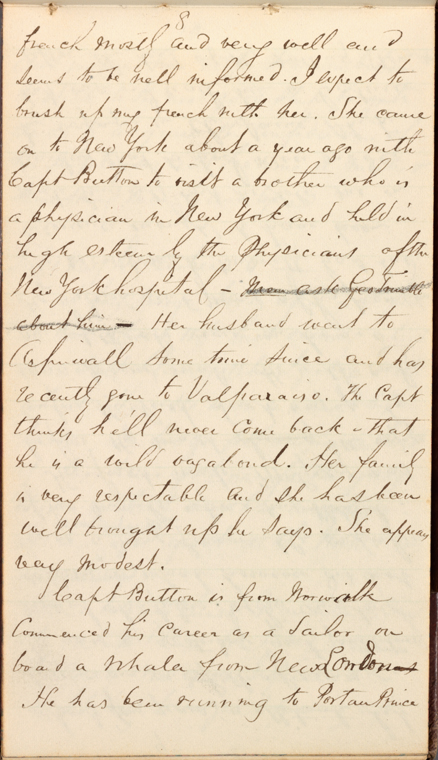 8
french mostly and very well and
seems to be well informed. I expect to
brush up my french with her. She came
on to New York about a year ago with
Capt Button to visit a brother who is
a physician in New York and held in
high esteem by the Physicians of the
New York hospital - Mem ask
about him - Her husband went to
Aspinwall some time since and has
recently gone to Valparaiso. The Capt
thinks he'll never come back - that
he is a wild vagabond. Her family
is very respectable and she has been
well brought up he says. She appears
very modest.
Capt Button is from Norwalk
Commenced his career as a Sailor on
board a whaler from New London
He has been running to Port au Prince